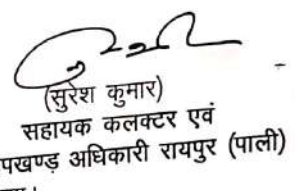 (सुरेश कुमार)
सहायक कलक्टर एवं
पखण्ड अधिकारी रायपुर (पाली)